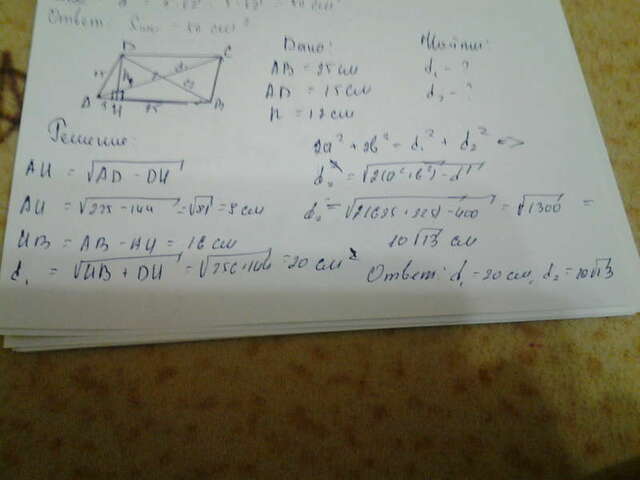 Ответ: S = 50 см²
D C
A H B
25
Дано:
AB = 25 см
AD = 15 см
h = 12 см
Найти:
d₁ - ?
d₂ - ?
Решение:
AH = √AD - DH
AH = √225 - 144 = √81 = 9 см
HB = AB - AH = 16 см
d₁ = √HB + DH = √256 + 144 = 20 см
2a² + 2b² = d₁² + d₂² <=>
d₂ = √2(a² + b²) - d₁²
d₂ = √2(625 + 225) - 400 = √1300 =
10√13 см
Ответ: d₁ = 20 см, d₂ = 10√13